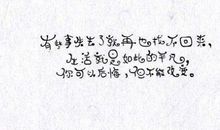 有些事失去了就再也找不回来，
生活就是如此的平凡。
你可以后悔，但不能改变。